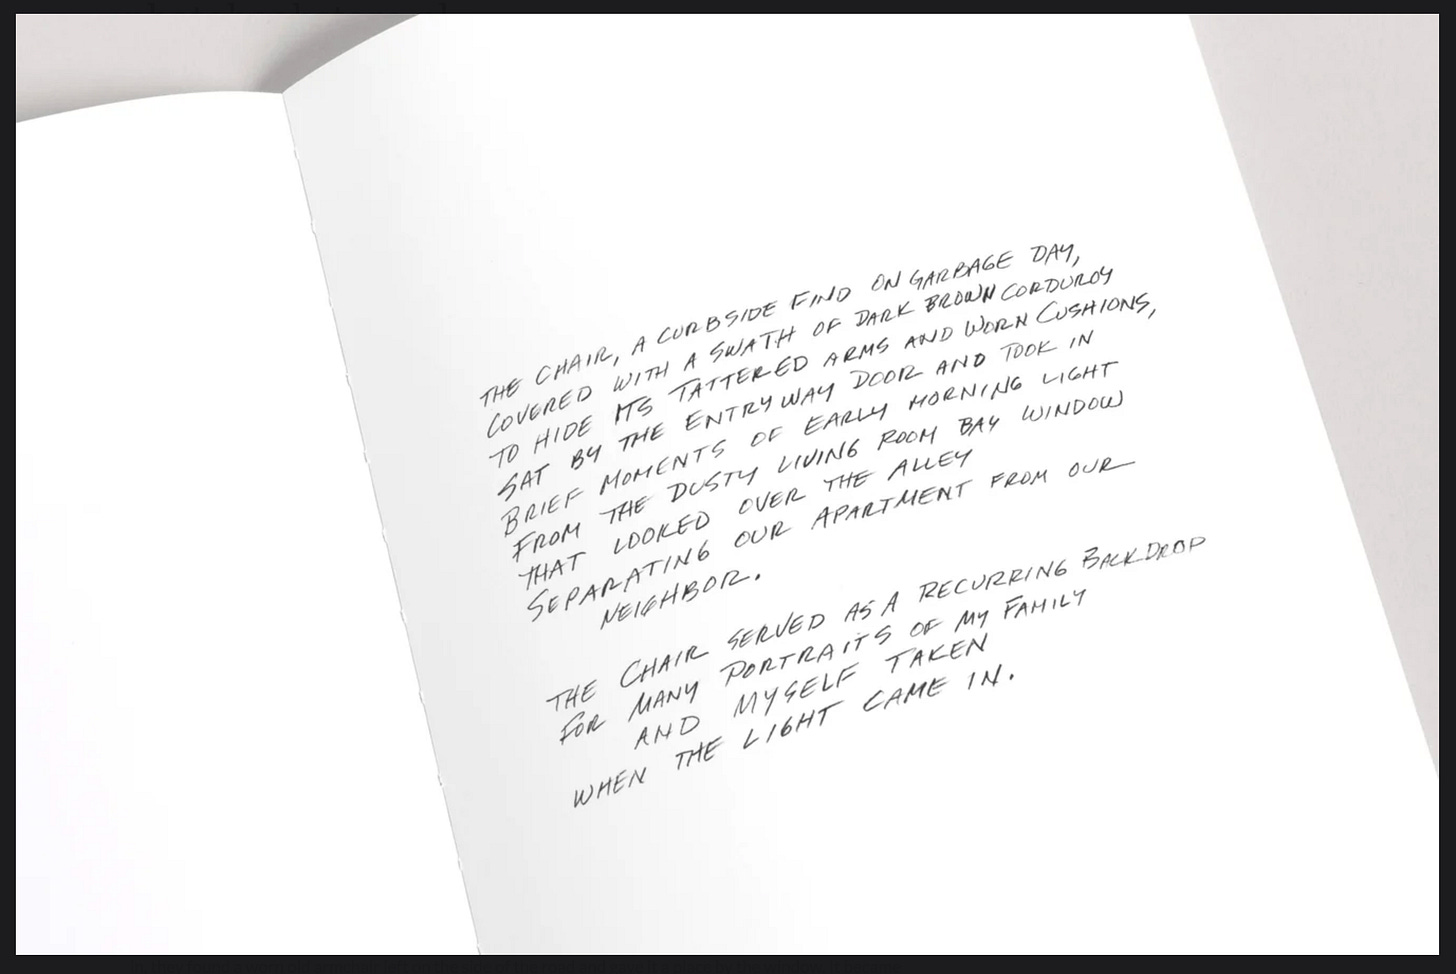 THE CHAIR, A CURBSIDE FIND ON GARBAGE DAY,
COVERED WITH A SWATH OF DARK BROWN CORDUROY
TO HIDE ITS TATTERED ARMS AND WORN CUSHIONS,
SAT BY THE ENTRYWAY DOOR AND TOOK IN
BRIEF MOMENTS OF EARLY MORNING LIGHT
FROM THE DUSTY LIVING ROOM BAY WINDOW
THAT LOOKED OVER THE ALLEY
SEPARATING OUR APARTMENT FROM OUR
NEIGHBOR.
THE CHAIR SERVED AS A RECURRING BACKDROP
FOR MANY PORTRAITS OF MY FAMILY
AND MYSELF TAKEN
WHEN THE LIGHT CAME IN.